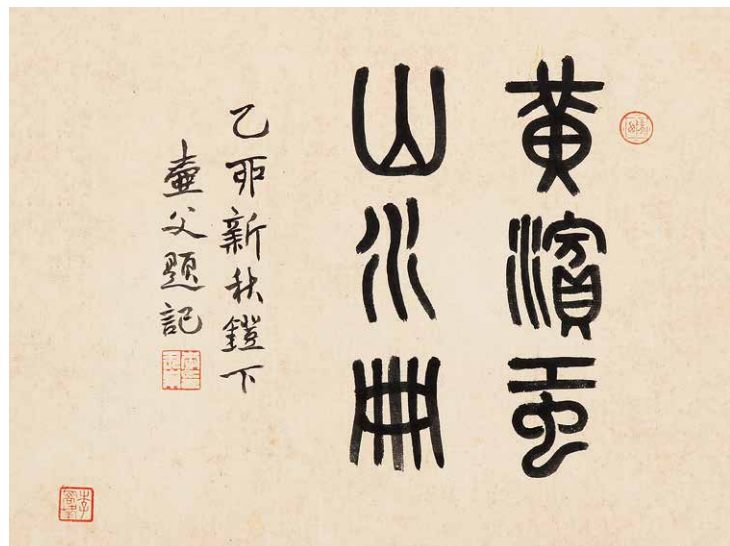 黄濱虹
山水冊
乙丣新秋鐙下
壷父題記